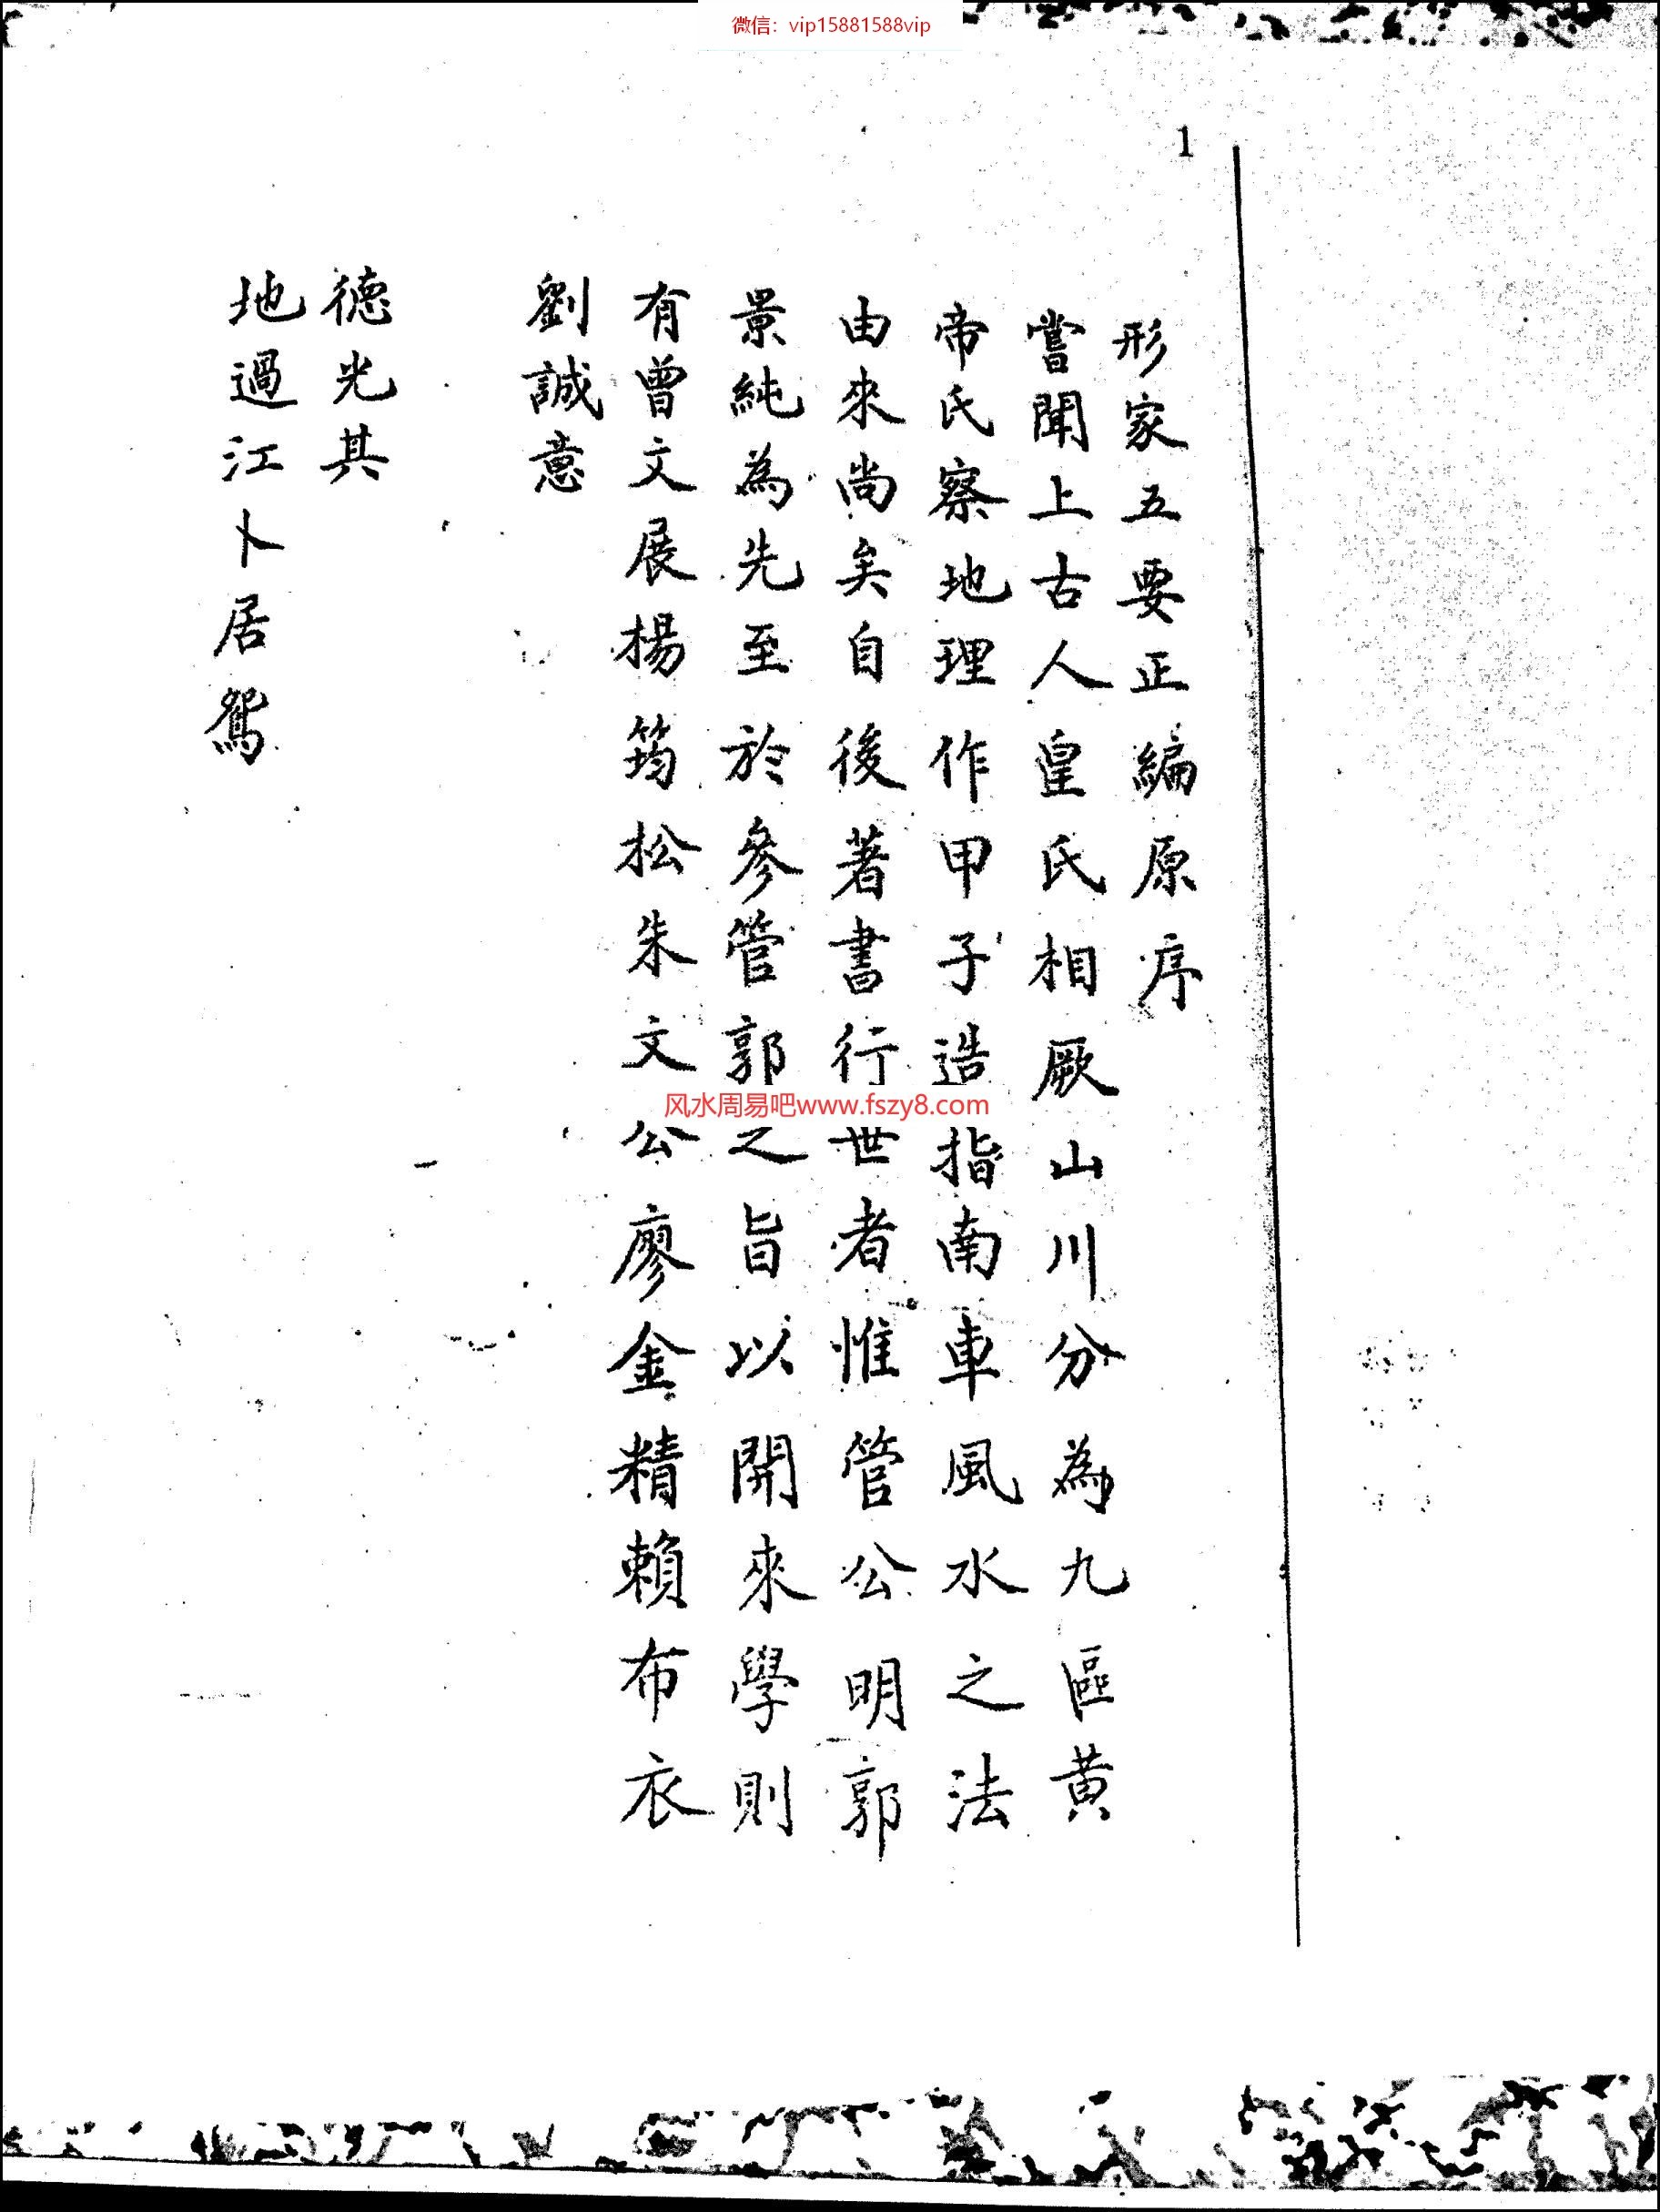 微信：vip15881588vip
1
形家五要正編原序
嘗聞上古人皇氏相厥山川分為九區黃
帝氏察地理作甲子造指南車風水之法
由來尚矣自後著書行世者惟管公明郭
景純為先至於參管郭之旨以開來學則
有曾文展楊筠松朱文公廖金精賴布衣
劉誠意
德光其
地過江卜居鴛
风水周易吧www.fszy8.com